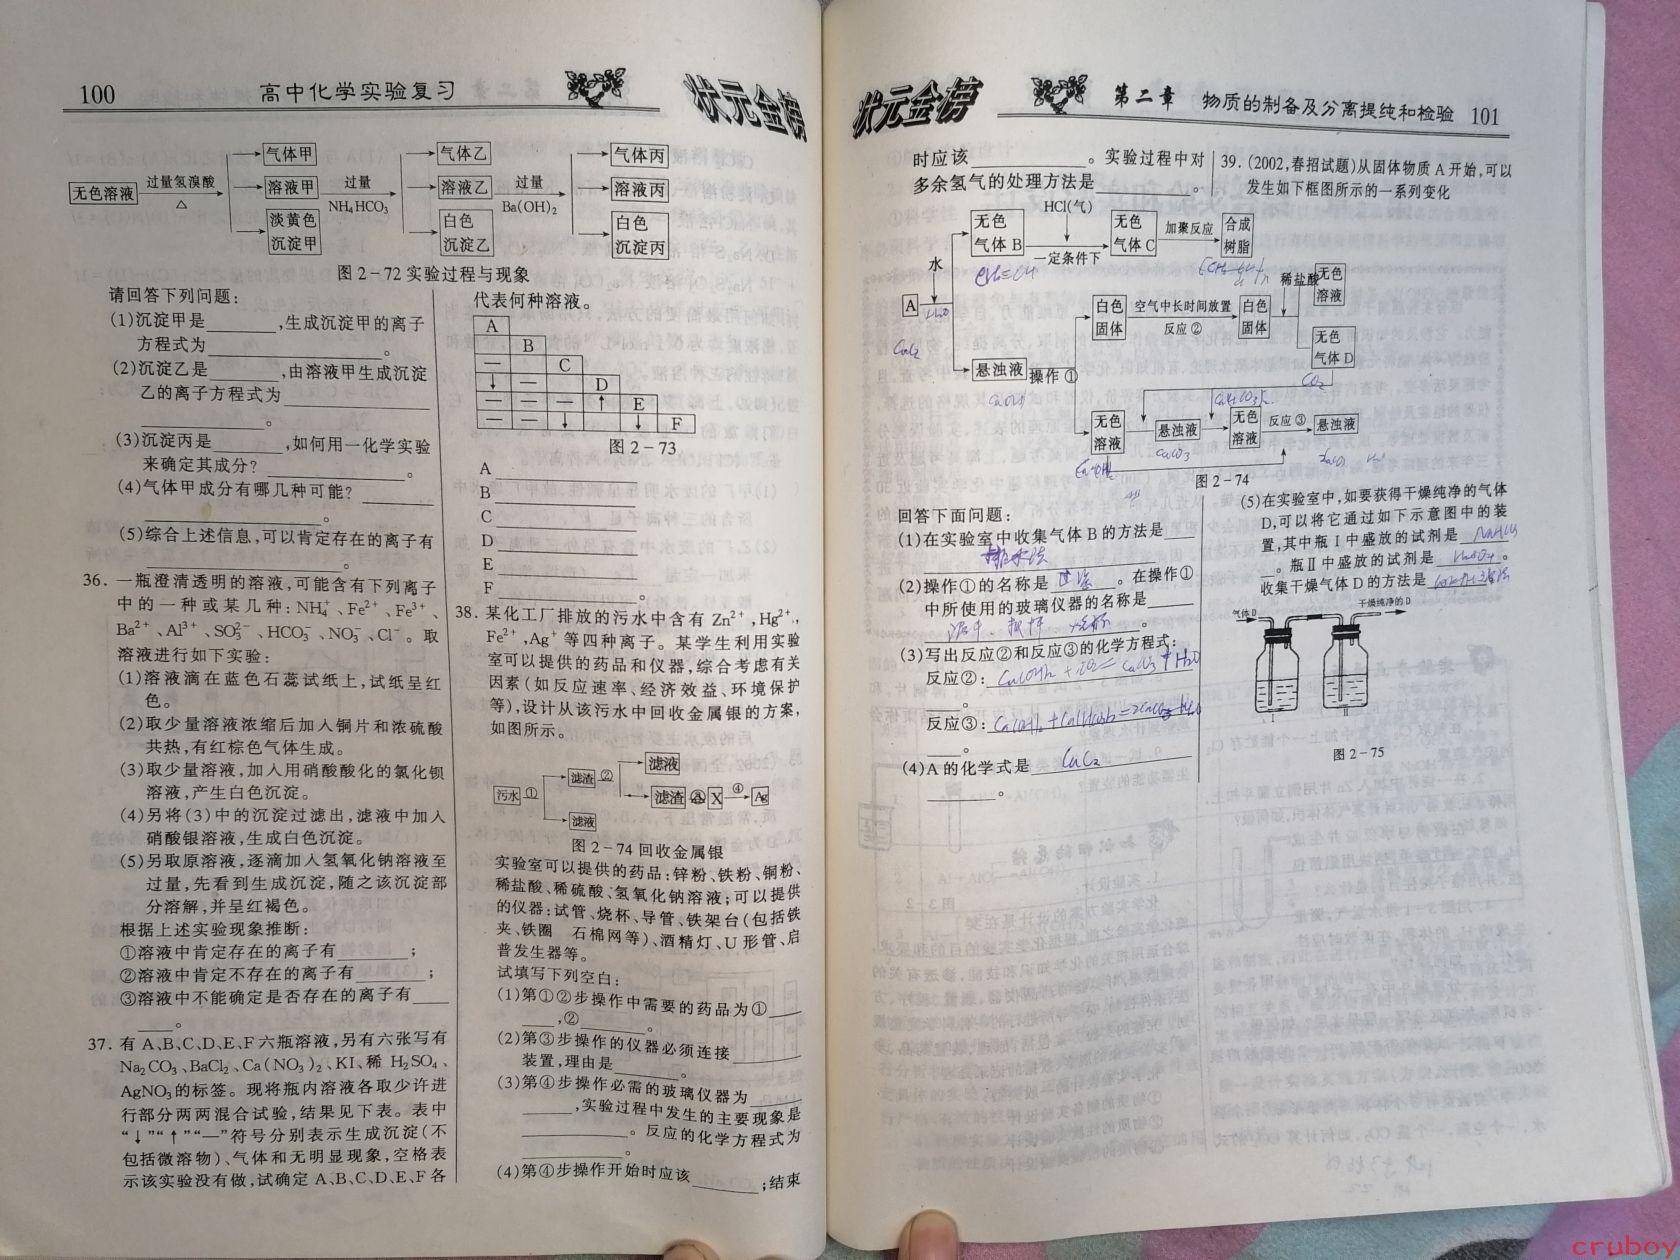 100 高中化学实验复习 状元金榜
无色溶液 过量氢溴酸 △ 气体甲 溶液甲 淡黄色沉淀甲 过量 NH₄HCO₃ 气体乙 溶液乙 白色沉淀乙 过量 Ba(OH)₂ 气体丙 溶液丙 白色沉淀丙
图 2-72 实验过程与现象
请回答下列问题:
(1)沉淀甲是________,生成沉淀甲的离子
方程式为________________。
(2)沉淀乙是________,由溶液甲生成沉淀
乙的离子方程式为________________
________________。
(3)沉淀丙是________,如何用一化学实验
来确定其成分? ________________。
(4)气体甲成分有哪几种可能? ________
________________。
(5)综合上述信息,可以肯定存在的离子有
________________。
36. 一瓶澄清透明的溶液,可能含有下列离子
中的一种或某几种:NH₄⁺、Fe²⁺、Fe³⁺、
Ba²⁺、Al³⁺、SO₃²⁻、HCO₃⁻、NO₃⁻、Cl⁻。取
溶液进行如下实验:
(1)溶液滴在蓝色石蕊试纸上,试纸呈红
色。
(2)取少量溶液浓缩后加入铜片和浓硫酸
共热,有红棕色气体生成。
(3)取少量溶液,加入用硝酸酸化的氯化钡
溶液,产生白色沉淀。
(4)另将(3)中的沉淀过滤出,滤液中加入
硝酸银溶液,生成白色沉淀。
(5)另取原溶液,逐滴加入氢氧化钠溶液至
过量,先看到生成沉淀,随之该沉淀部
分溶解,并呈红褐色。
根据上述实验现象推断:
①溶液中肯定存在的离子有________;
②溶液中肯定不存在的离子有________;
③溶液中不能确定是否存在的离子有____
____。
37. 有 A、B、C、D、E、F 六瓶溶液,另有六张写有
Na₂CO₃、BaCl₂、Ca(NO₃)₂、KI、稀 H₂SO₄、
AgNO₃的标签。现将瓶内溶液各取少许进
行部分两两混合试验,结果见下表。表中
“↓”“↑”“—”符号分别表示生成沉淀(不
包括微溶物)、气体和无明显现象,空格表
示该实验没有做,试确定 A、B、C、D、E、F 各
代表何种溶液。
A
B
— C
↓ — D
— — ↑ E
— — ↓ ↓ F
图 2-73
A ________________
B ________________
C ________________
D ________________
E ________________
F ________________。
38. 某化工厂排放的污水中含有 Zn²⁺,Hg²⁺,
Fe²⁺,Ag⁺等四种离子。某学生利用实验
室可以提供的药品和仪器,综合考虑有关
因素(如反应速率、经济效益、环境保护
等),设计从该污水中回收金属银的方案,
如图所示。
污水 ① 滤渣 ② 滤液 滤渣 ③ X ④ Ag
滤液
图 2-74 回收金属银
实验室可以提供的药品:锌粉、铁粉、铜粉、
稀盐酸、稀硫酸、氢氧化钠溶液;可以提供
的仪器:试管、烧杯、导管、铁架台(包括铁
夹、铁圈 石棉网等)、酒精灯、U 形管、启
普发生器等。
试填写下列空白:
(1)第①②步操作中需要的药品为①____
____,②________。
(2)第③步操作的仪器必须连接________
装置,理由是________。
(3)第④步操作必需的玻璃仪器为________
________,实验过程中发生的主要现象是
________________。反应的化学方程式为
________________。
(4)第④步操作开始时应该________;结束
状元金榜 第二章 物质的制备及分离提纯和检验 101
时应该________________。实验过程中对
多余氢气的处理方法是________________。
39. (2002,春招试题)从固体物质 A 开始,可以
发生如下框图所示的一系列变化
A 水 无色气体 B HCl(气) 一定条件下 无色气体 C 加聚反应 合成树脂
悬浊液 操作 ① 白色固体 空气中长时间放置 反应 ② 白色固体 稀盐酸 无色溶液 无色气体 D
无色溶液 悬浊液 无色溶液 反应 ③ 悬浊液
CH≡CH
H₂O
CaC₂
CO₂
CaCO₃
图 2-74
回答下面问题:
(1)在实验室中收集气体 B 的方法是____
排水法
(2)操作①的名称是 过滤 。在操作①
中所使用的玻璃仪器的名称是____
漏斗、 、烧杯 。
(3)写出反应②和反应③的化学方程式:
反应②: Ca(OH)₂ + CO₂ = CaCO₃ + H₂O
________。
反应③: Ca(OH)₂ + Ca(HCO₃)₂ = 2CaCO₃ + H₂O
____。
(4)A 的化学式是 CaC₂
________。
(5)在实验室中,如要获得干燥纯净的气体
D,可以将它通过如下示意图中的装
置,其中瓶Ⅰ中盛放的试剂是 NaHCO₃
__。瓶Ⅱ中盛放的试剂是 H₂SO₄ 。
收集干燥气体 D 的方法是
气体 D 干燥纯净的 D
Ⅰ Ⅱ
图 2-75
cruboy